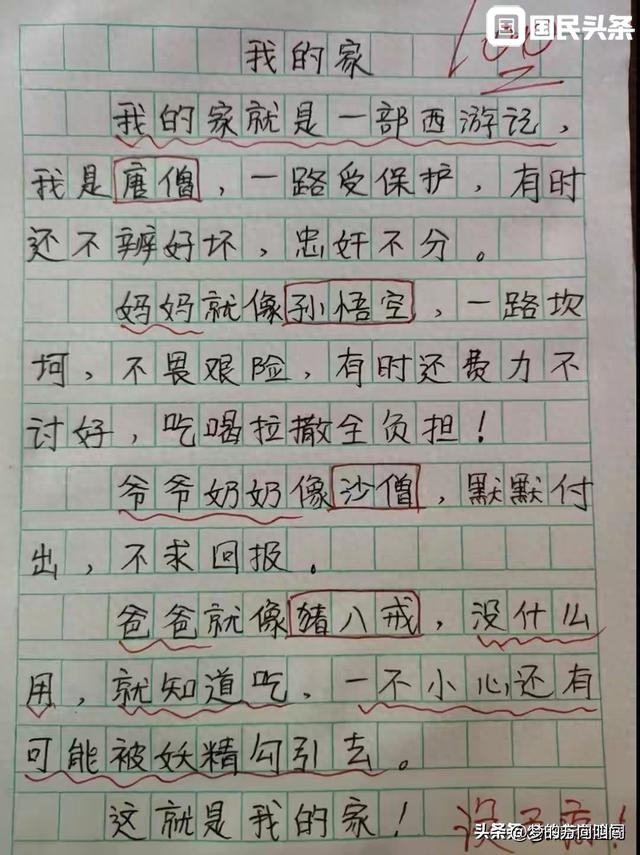 国民头条
100
我的家
我的家就是一部西游记，
我是唐僧，一路受保护，有时
还不辨好坏，忠奸不分。
妈妈就像孙悟空，一路坎
坷，不畏艰险，有时还费力不
讨好，吃喝拉撒全负担！
爷爷奶奶像沙僧，默默付
出，不求回报。
爸爸就像猪八戒，没什么
用，就知道吃，一不小心还有
可能被妖精勾引去。
这就是我的家！
没毛病！
头条